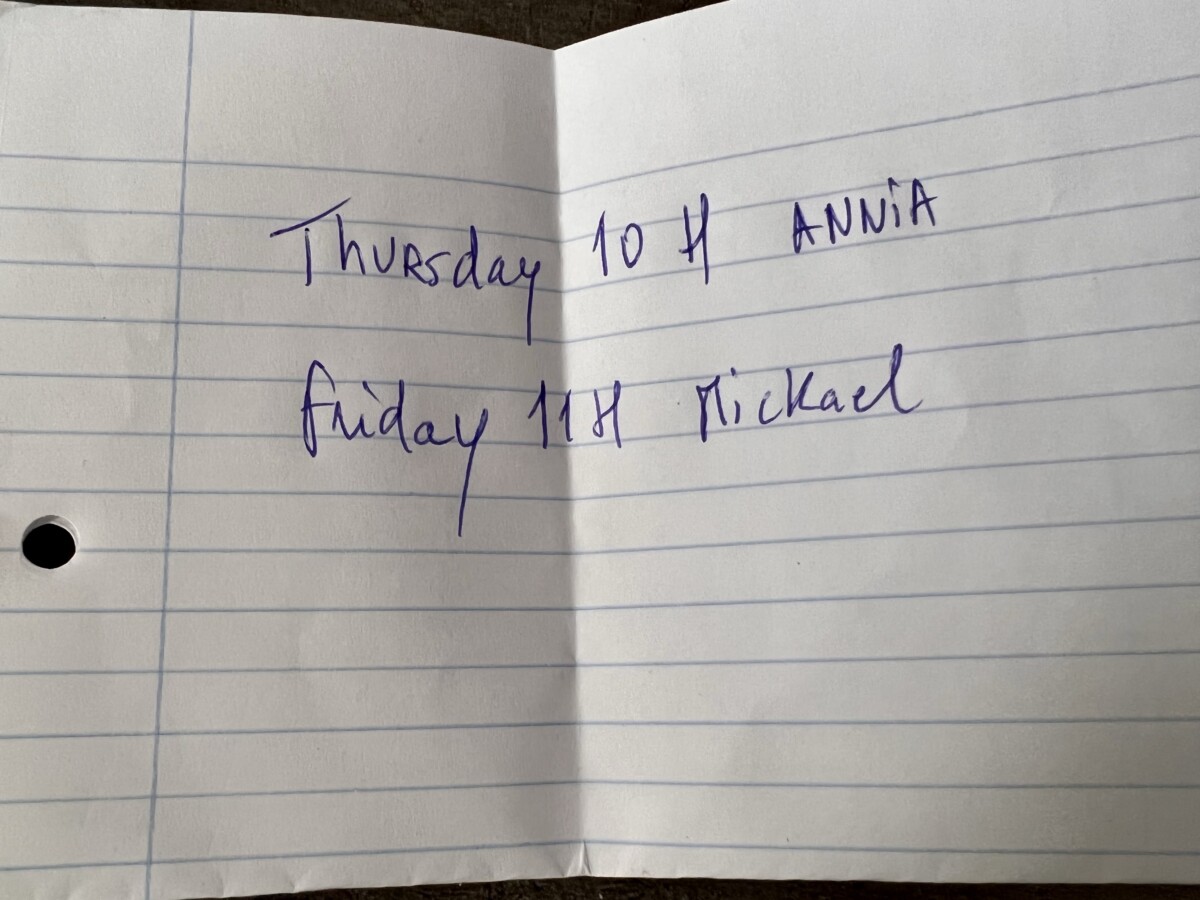 Thursday 10 H ANNiA
friday 11H Mickael